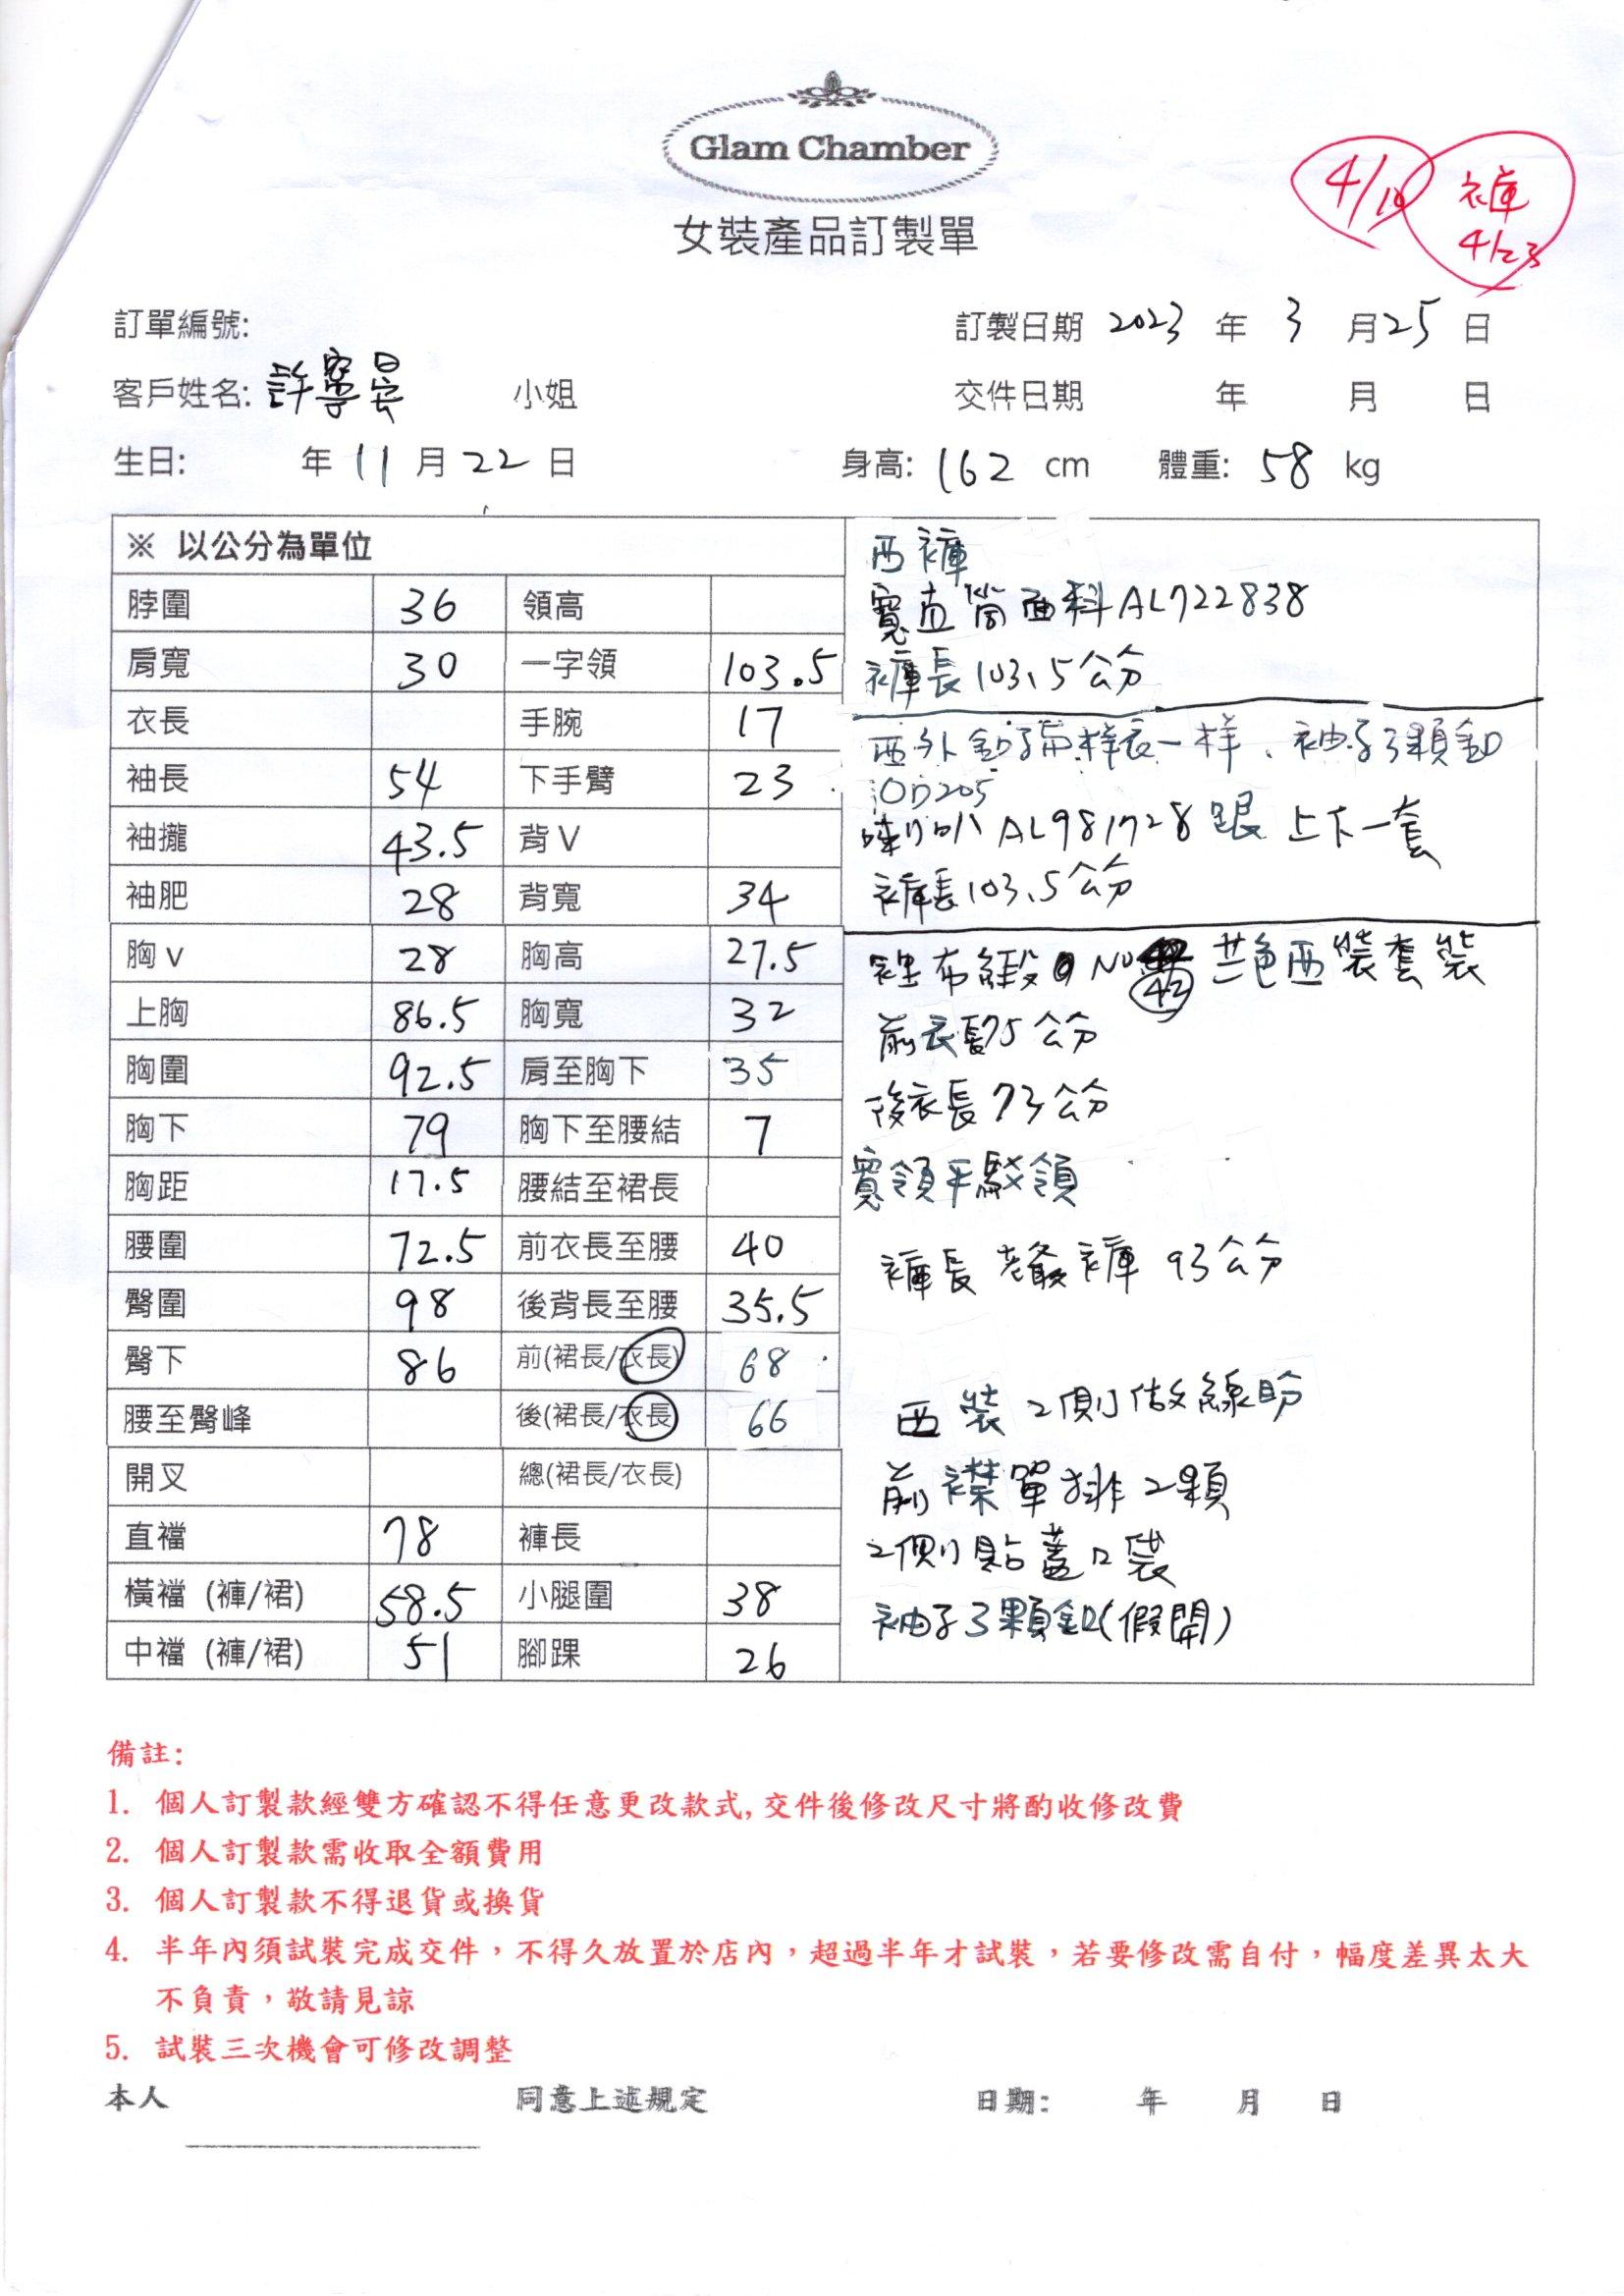 Glam Chamber
女裝產品訂製單
4/10
褲
4/23
訂單編號:
訂製日期 2023 年 3 月 25 日
客戶姓名: 許寧 小姐
交件日期 年 月 日
生日: 年 11 月 22 日
身高: 162 cm 體重: 58 kg
※ 以公分為單位
脖圍 36 領高
肩寬 30 一字領 103.5
衣長 手腕 17
袖長 54 下手臂 23
袖攏 43.5 背V
袖肥 28 背寬 34
胸v 28 胸高 27.5
上胸 86.5 胸寬 32
胸圍 92.5 肩至胸下 35
胸下 79 胸下至腰結 7
胸距 17.5 腰結至裙長
腰圍 72.5 前衣長至腰 40
臀圍 98 後背長至腰 35.5
臀下 86 前(裙長/衣長) 68
腰至臀峰 後(裙長/衣長) 66
開叉 總(裙長/衣長)
直襠 78 褲長
橫襠 (褲/裙) 58.5 小腿圍 38
中襠 (褲/裙) 51 腳踝 26
西褲
寬直筒面料AL722838
褲長103.5公分
西外 样衣一样、袖子3顆釦
OD205
喇叭 AL981728 跟 上下一套
褲長103.5公分
裡布緞 NO 42 色西裝套裝
前衣長75公分
後衣長73公分
寬領平駁領
褲長 老爺褲 93公分
西裝2側做線
前襟單排2顆
2側貼蓋口袋
袖子3顆釦(假開)
備註:
1. 個人訂製款經雙方確認不得任意更改款式,交件後修改尺寸將酌收修改費
2. 個人訂製款需收取全額費用
3. 個人訂製款不得退貨或換貨
4. 半年內須試裝完成交件，不得久放置於店內，超過半年才試裝，若要修改需自付，幅度差異太大
不負責，敬請見諒
5. 試裝三次機會可修改調整
本人 同意上述規定 日期: 年 月 日